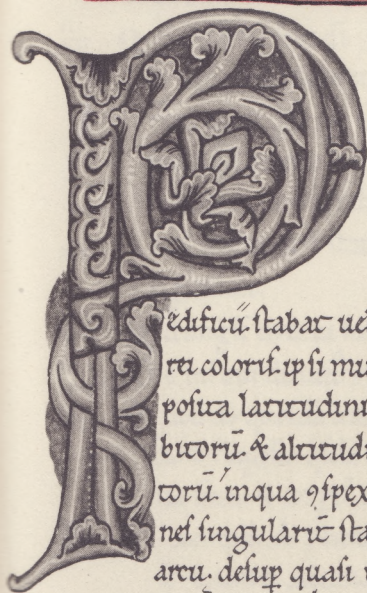 P
ędificiū. ſtabat ue
rei coloriſ. ipſi mu
poſita latitudini
bitorū. & altitudi
torū. inqua ꝯſpex
neſ ſingularit̄ ſta
arcu. deſuꝑ quaſi